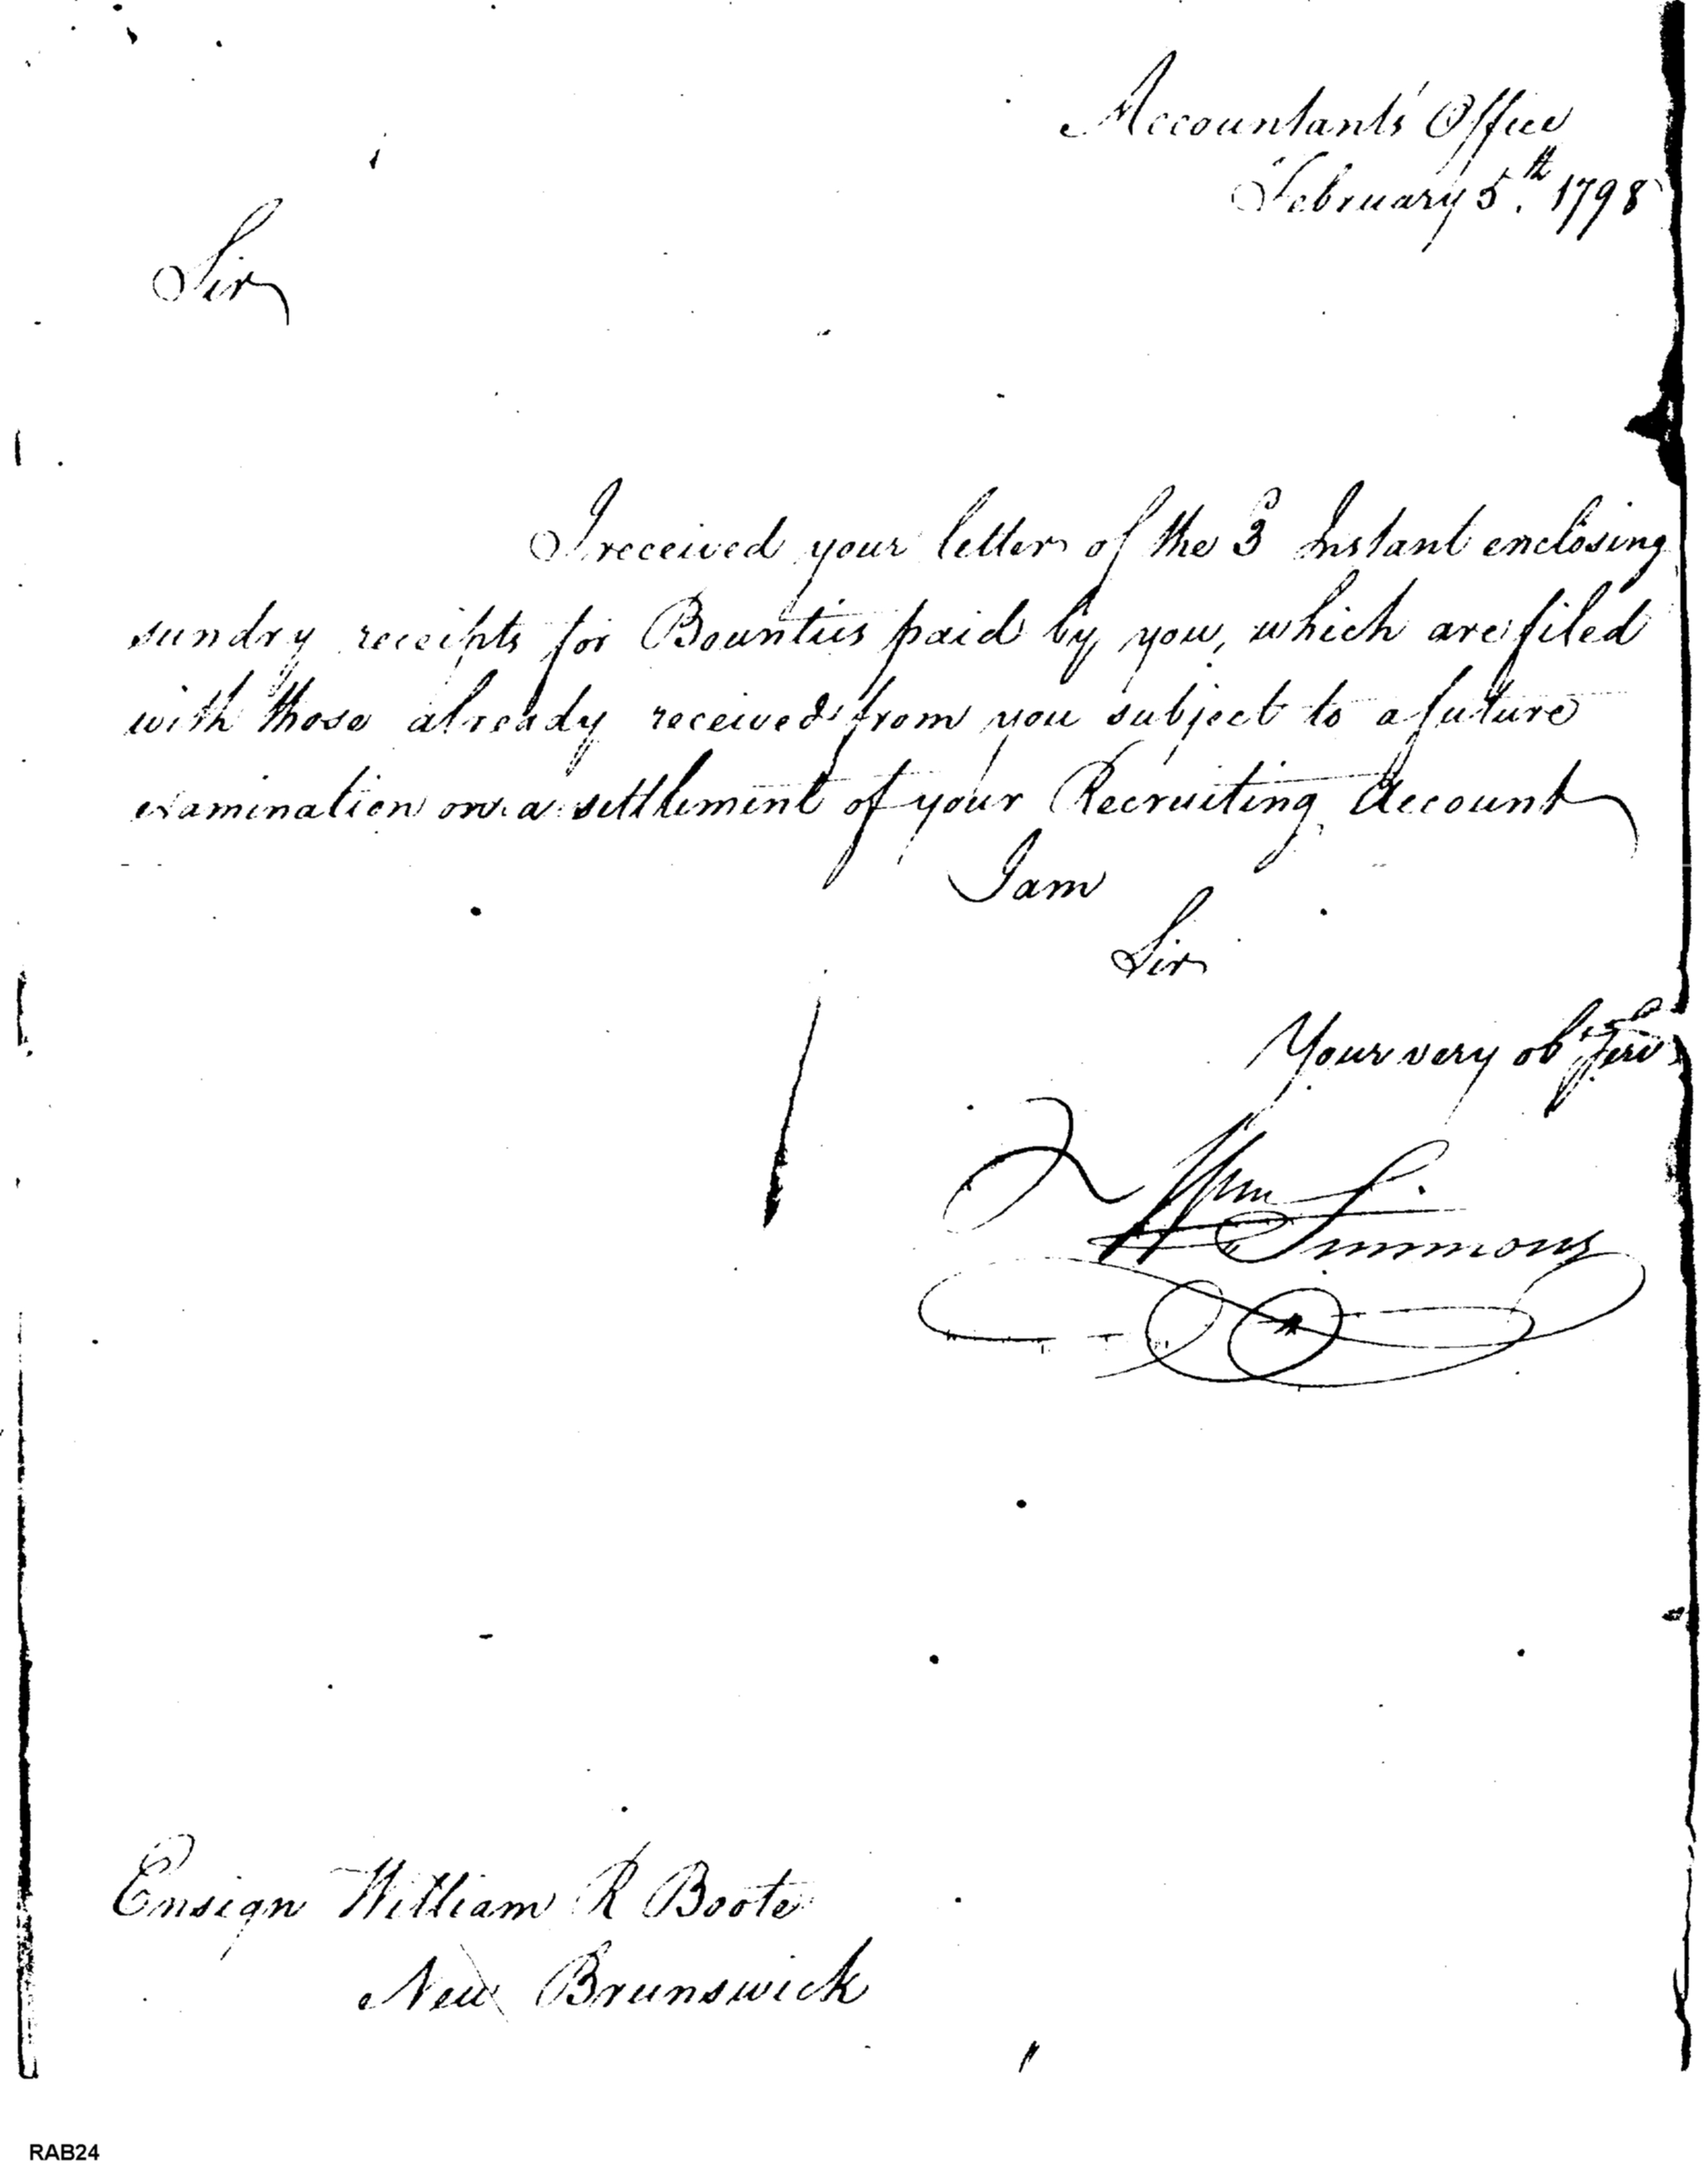 Accountants' Office
February 5th. 1798
Sir
I received your letter of the 3 Instant enclosing
sundry receipts for Bounties paid by you, which are filed
with those already received from you subject to a future
examination on a settlement of your Recruiting Account
I am
Sir
Your very obt Serv
Wm Simmons
Ensign William R Boote
New Brunswick
RAB24